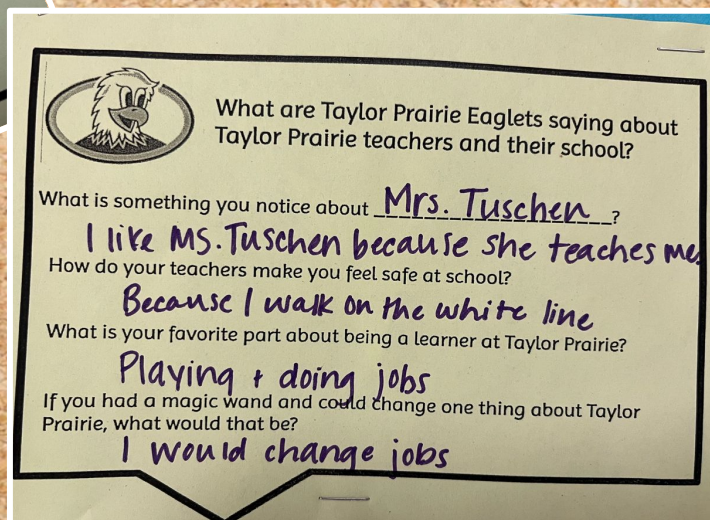 What are Taylor Prairie Eaglets saying about
Taylor Prairie teachers and their school?
What is something you notice about Mrs. Tuschen?
I like MS. Tuschen because she teaches me.
How do your teachers make you feel safe at school?
Because I walk on the white line
What is your favorite part about being a learner at Taylor Prairie?
Playing + doing jobs
If you had a magic wand and could change one thing about Taylor
Prairie, what would that be?
I would change jobs